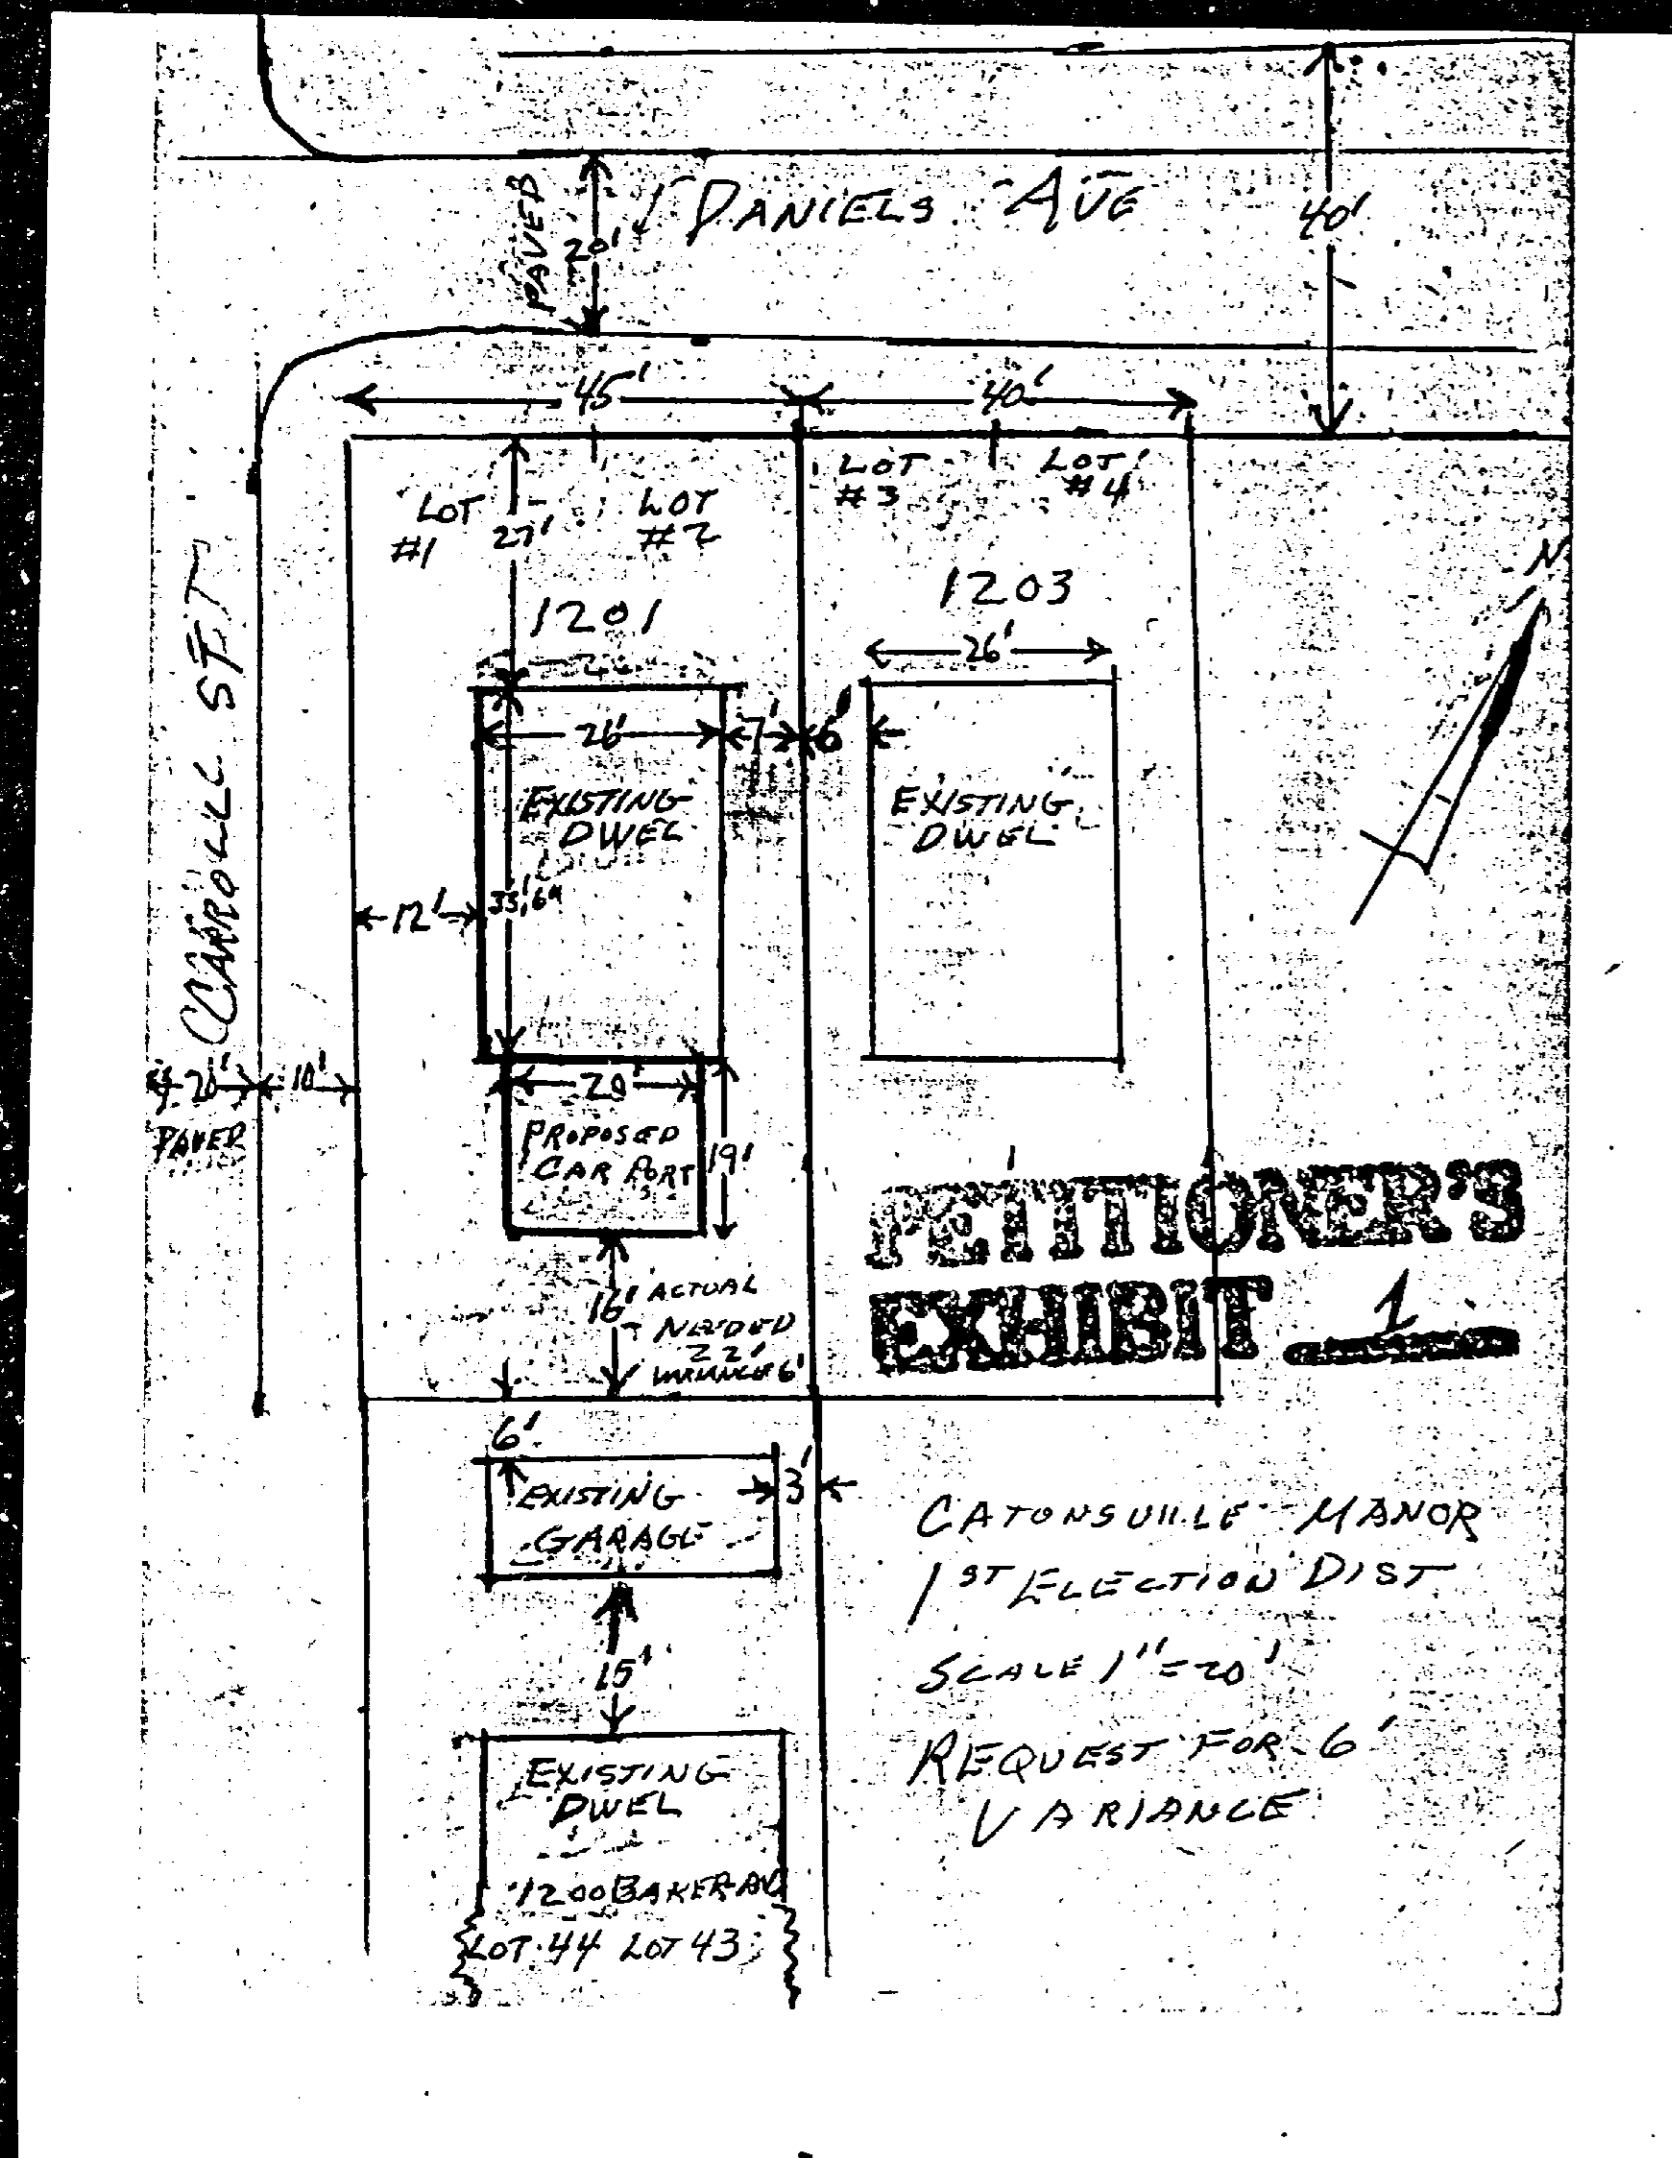 DANIELS AVE
PAVED
20'
40'
45'
40'
LOT
#1
27'
LOT
#2
LOT
#3
LOT
#4
N
1201
1203
26'
26'
7'
6'
EXISTING
DWEL
EXISTING
DWEL
CARROLL ST
12'
33'6"
20'
10'
PAVED
20'
PROPOSED
CAR PORT
19'
PETITIONER'S
EXHIBIT 1
16' ACTUAL
NEEDED
22'
6'
6'
EXISTING
GARAGE
3'
15'
CATONSVILLE MANOR
1ST ELECTION DIST
SCALE 1"=20'
REQUEST FOR 6'
VARIANCE
EXISTING
DWEL
1200 BAKER AV
LOT 44 LOT 43